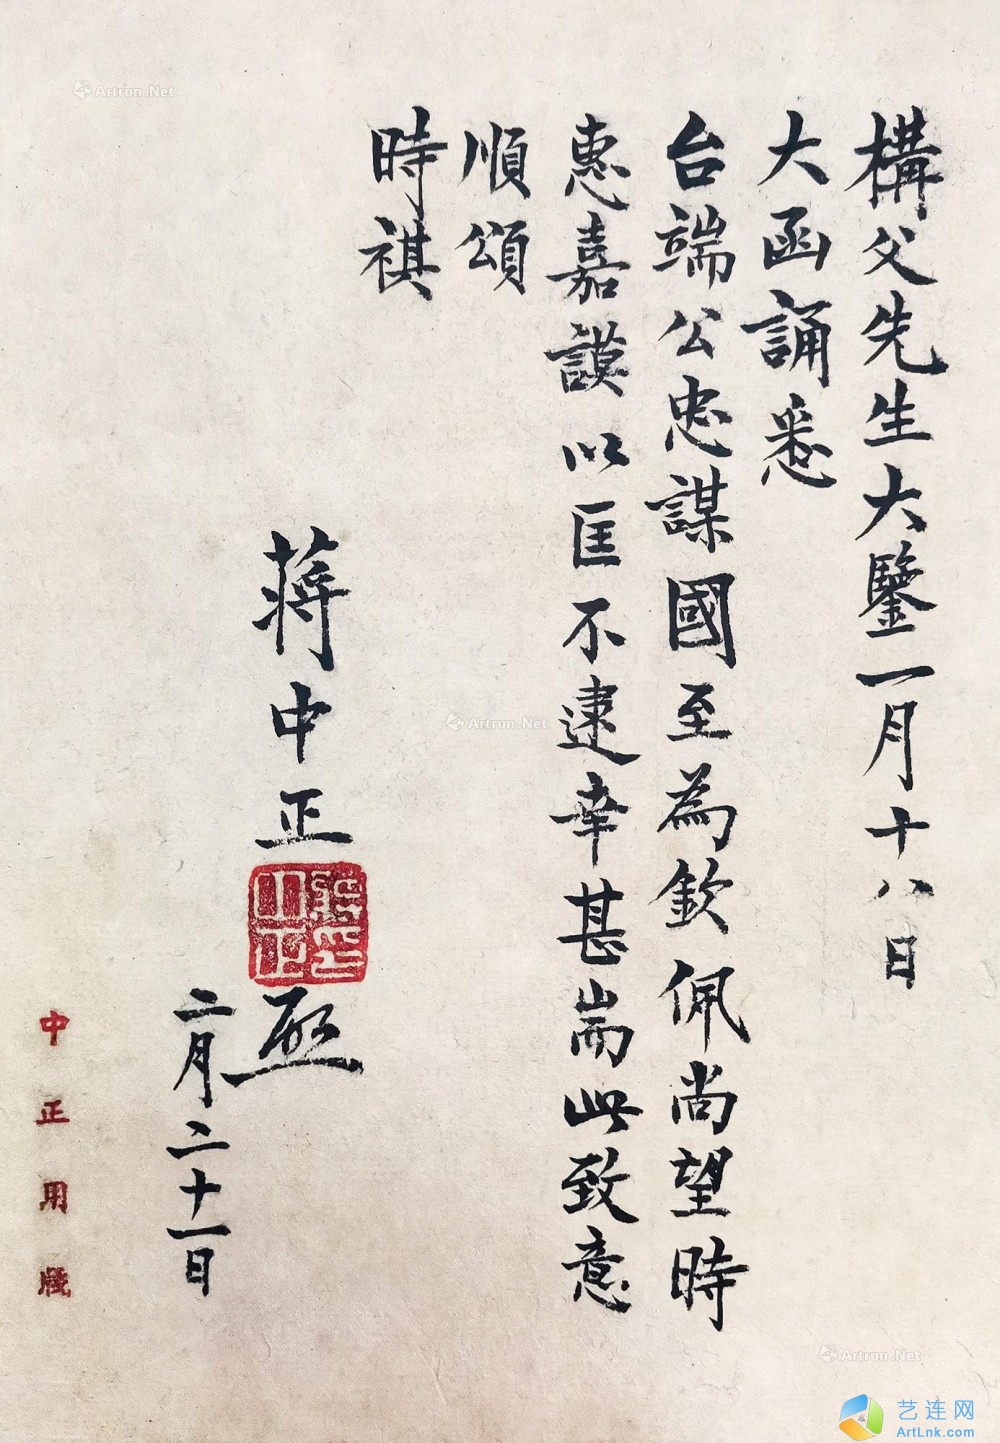 構父先生大鑒一月十八日
大函誦悉
台端公忠謀國至為欽佩尚望時
惠嘉謨以匡不逮幸甚耑此致意
順頌
時祺
蔣中正
蔣中正印
啟
二月二十一日
中正用牋
Artron.Net
Artron.Net
Artron.Net
艺连网
ArtLnk.com